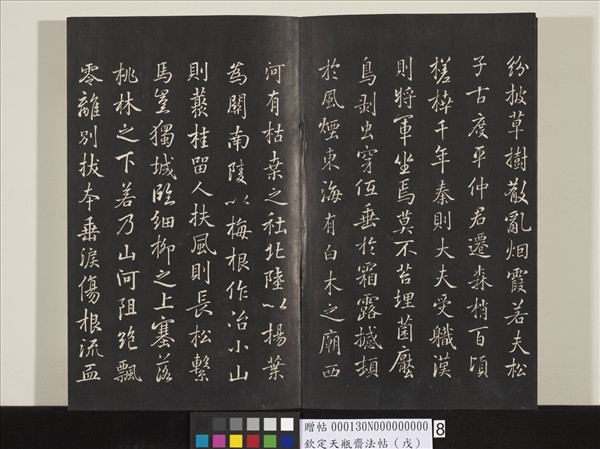 紛披草樹散亂烟霞若夫松
子古度平仲君遷森梢百頃
槎枿千年秦則大夫受職漢
則將軍坐焉莫不苔埋菌壓
鳥剥虫穿低垂於霜露撼頓
於風煙東海有白木之廟西
河有枯桒之社北陸以楊葉
為關南陵以梅根作冶小山
則藂桂留人扶風則長松繫
馬豈獨城臨細柳之上塞落
桃林之下若乃山河阻絶飄
零離別拔本垂淚傷根流血
贈帖 000130N000000000
欽定天瓶齋法帖(戊)
8